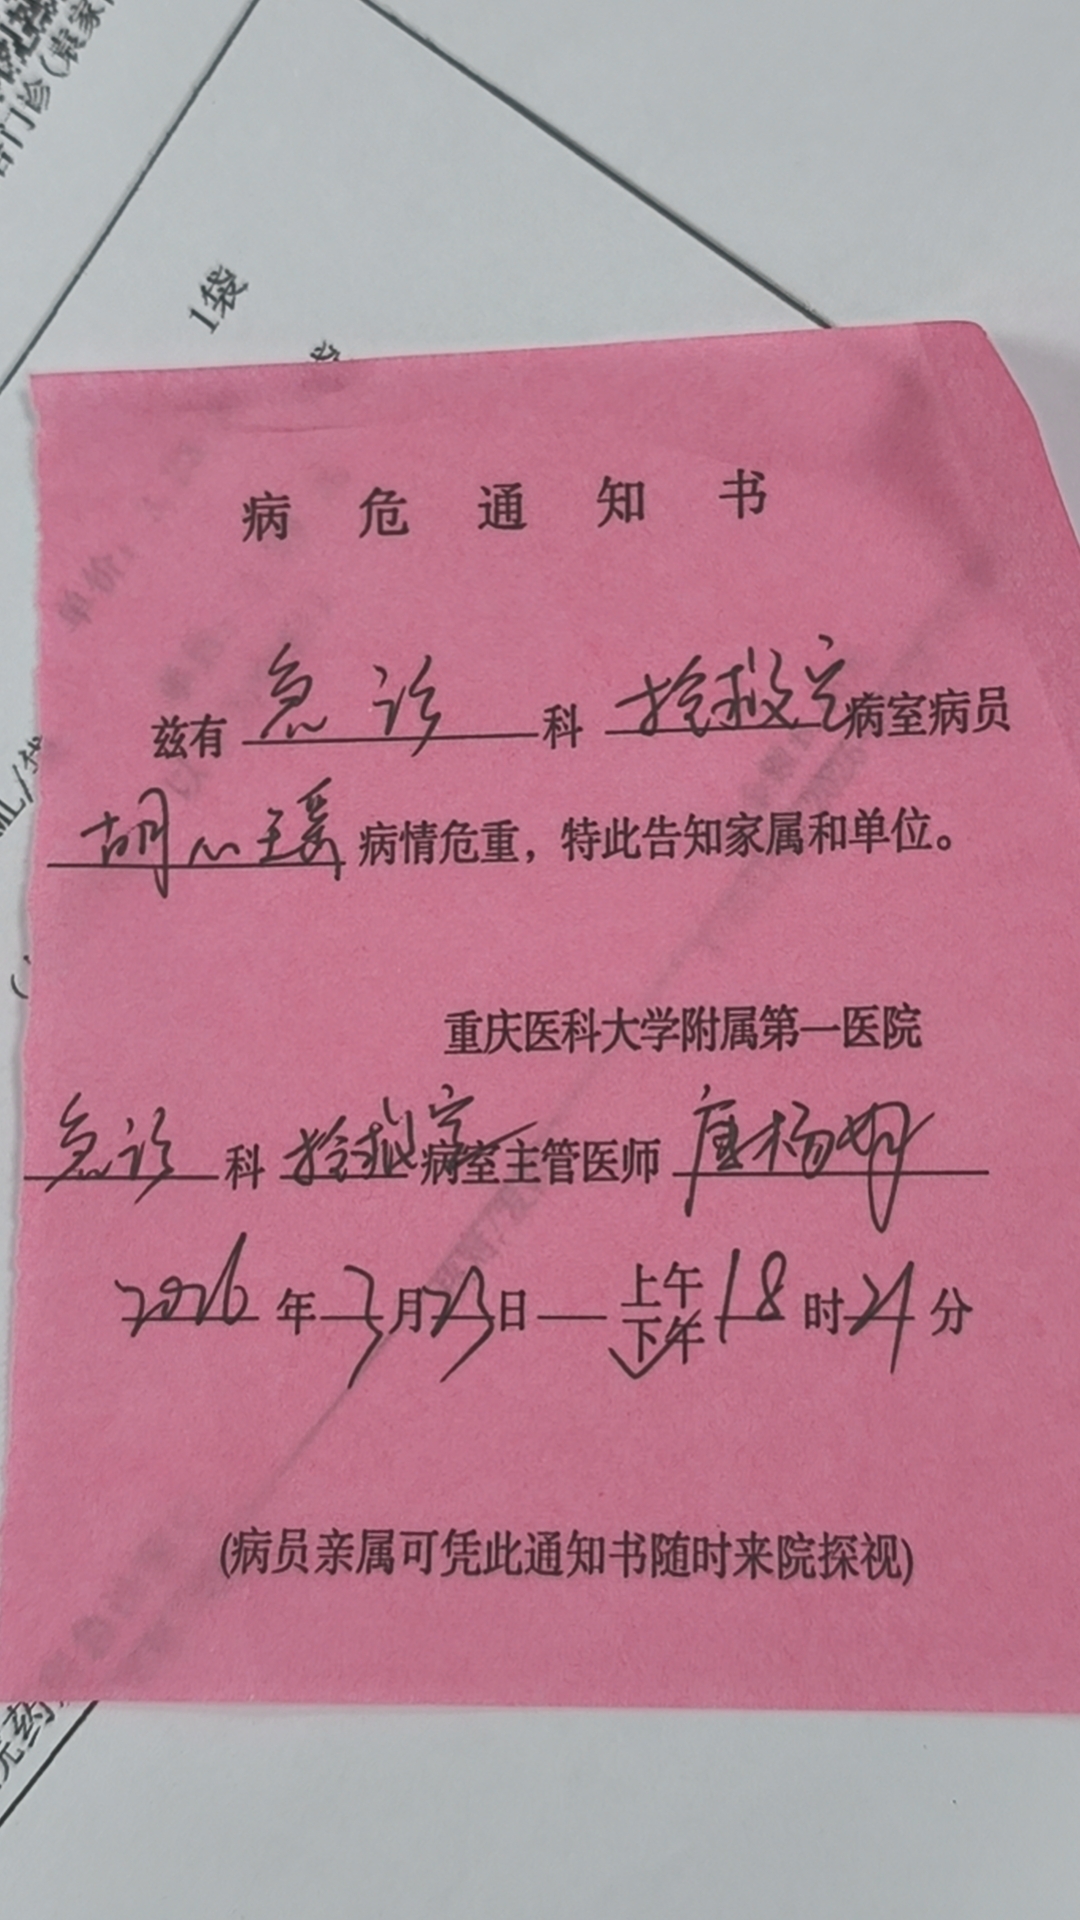 1袋
病危通知书
兹有 急诊 科 抢救室 病室病员
胡心瑶 病情危重，特此告知家属和单位。
重庆医科大学附属第一医院
急诊 科 抢救室 病室主管医师 唐杨
2026 年 3 月 23 日 上午 下午 18 时 21 分
(病员亲属可凭此通知书随时来院探视)